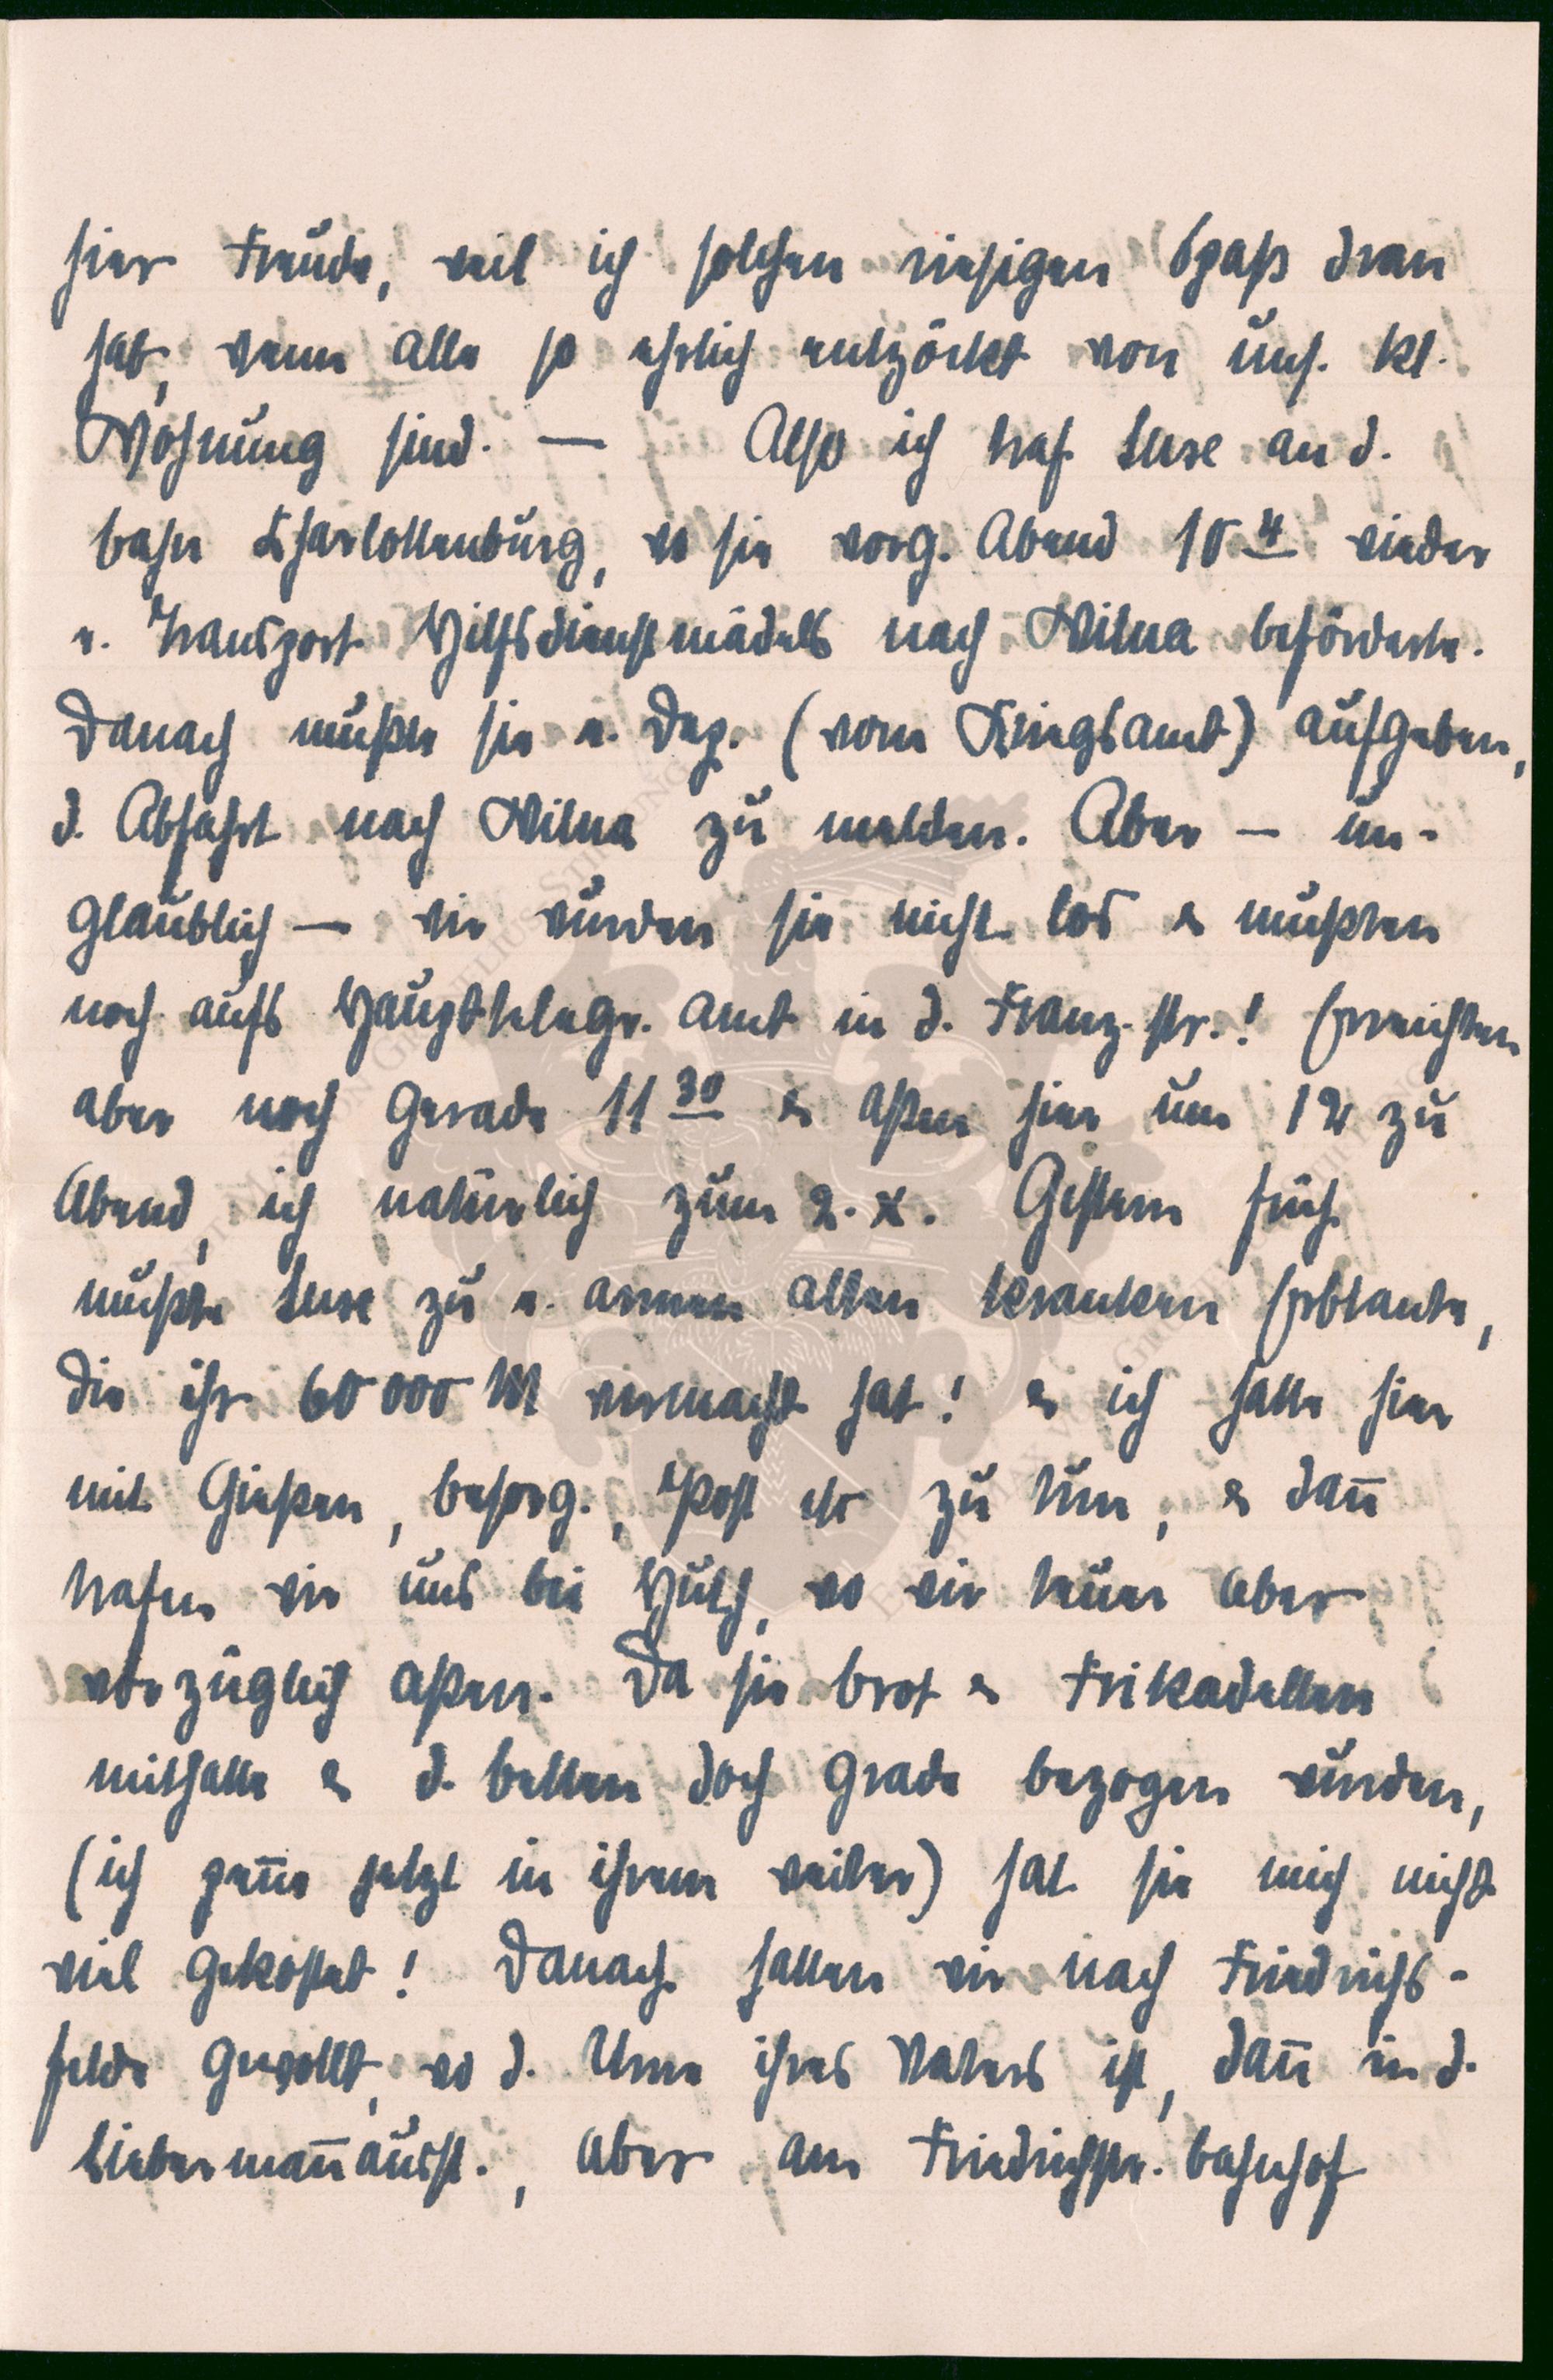 hier Freude, weil ich solchen riesigen Spaß dran
hab, wenn alle so ehrlich entzückt von uns. kl.
Wohnung sind. — Also ich traf Luse an d.
bahn Charlottenburg, wo sie vorg. Abend 10 4 wieder
e. Transport Hilfsdienstmädels nach Wilna beförderte.
Danach mußte sie e. Dep. (vom Kriegsamt) aufgeben,
d. Abfahrt nach Wilna zu melden. Aber — un-
glaublich — wir wurden sie nicht los & mußten
noch aufs Haupttelegr. amt in d. Franz. str.! Erreichten
aber noch gerade 11 30 & aßen hier um 12 zu
Abend, ich natürlich zum 2. x. Gestern früh
mußte Luse zu e. armen alten kranken Erbtante,
die ihr 60 000 M vermacht hat! & ich hatte hier
mit Gießen, besorg., Post etc zu tun, & dañ
trafen wir uns bei Huth, wo wir teuer aber
vorzüglich aßen. Da sie brot & Frikadellen
mithatte & d. betten doch grade bezogen wurden,
(ich peñe jetzt in ihrem weiter) hat sie mich nicht
viel gekostet! Danach hatten wir nach Friedrichs-
felde gewollt, wo d. Urne ihres Vaters ist, dañ in d.
Liebermañausst., aber am Friedrichstr. bahnhof